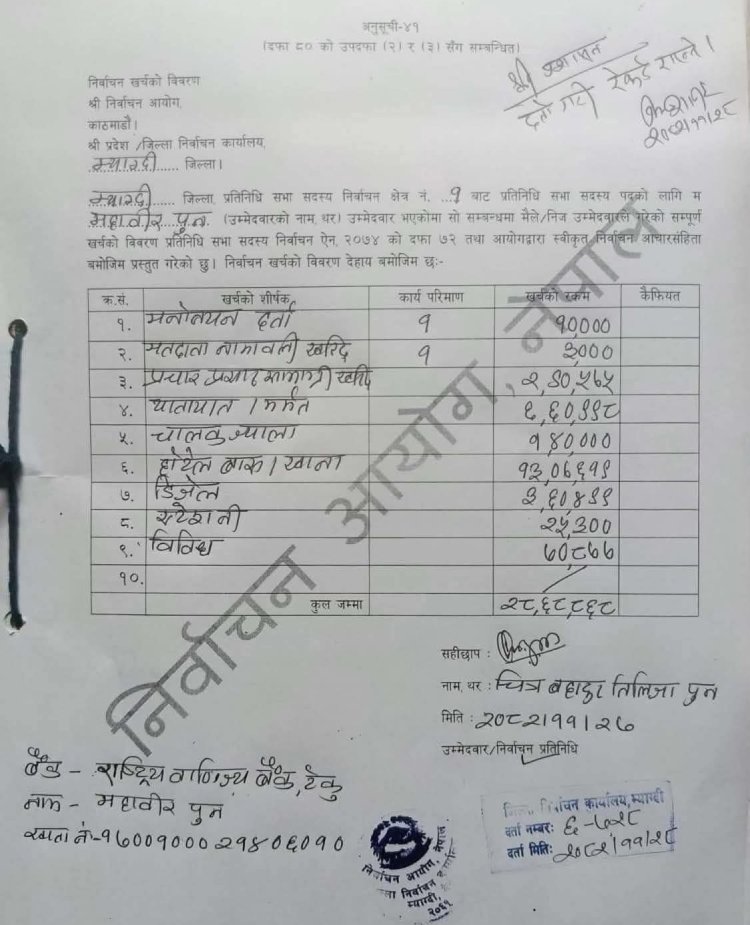 अनुसूची-४१
(दफा ८० को उपदफा (२) र (३) सँग सम्बन्धित)
दर्ता गरी रेकर्ड राख्ने।
२०८२।११।२८
निर्वाचन खर्चको विवरण
श्री निर्वाचन आयोग,
काठमाडौं।
श्री प्रदेश /जिल्ला निर्वाचन कार्यालय,
म्याग्दी...... जिल्ला।
म्याग्दी..... जिल्ला, प्रतिनिधि सभा सदस्य निर्वाचन क्षेत्र नं. ...१ बाट प्रतिनिधि सभा सदस्य पदको लागि म
महावीर पुन (उम्मेदवारको नाम, थर) उम्मेदवार भएकोमा सो सम्बन्धमा मैले/निज उम्मेदवारले गरेको सम्पूर्ण
खर्चको विवरण प्रतिनिधि सभा सदस्य निर्वाचन ऐन, २०७४ को दफा ७२ तथा आयोगद्वारा स्वीकृत निर्वाचन आचारसंहिता
बमोजिम प्रस्तुत गरेको छु। निर्वाचन खर्चको विवरण देहाय बमोजिम छः-
क्र.सं. खर्चको शीर्षक कार्य परिमाण खर्चको रकम कैफियत
१. मनोनयन दर्ता १ १०,०००
२. मतदाता नामावली खरिद १ ३,०००
३. प्रचार प्रसार सामाग्री खरिद
४. यातायात / मर्मत
५. चालक ज्याला १,४०,०००
६. होटेल बास / खाना १३,०६,६११
७. डिजेल
८. स्टेशनरी २५,३००
९. विविध
१०.
कुल जम्मा २८,६८,८६८
निर्वाचन आयोग, नेपाल
सहीछाप :
नाम, थर : चित्र बहादुर तिलिजा पुन
मिति : २०८२।११।२७
उम्मेदवार/निर्वाचन प्रतिनिधि
बैंक - राष्ट्रिय वाणिज्य बैंक, टेकु
नाम - महावीर पुन
खाता नं-
जिल्ला निर्वाचन कार्यालय, म्याग्दी
दर्ता नम्बर: ६-७२८
दर्ता मिति: २०८२।११।२८
निर्वाचन आयोग, नेपाल
जिल्ला निर्वाचन
म्याग्दी,